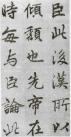 臣此後漢所以
傾頹也先帝在
時每與臣論此